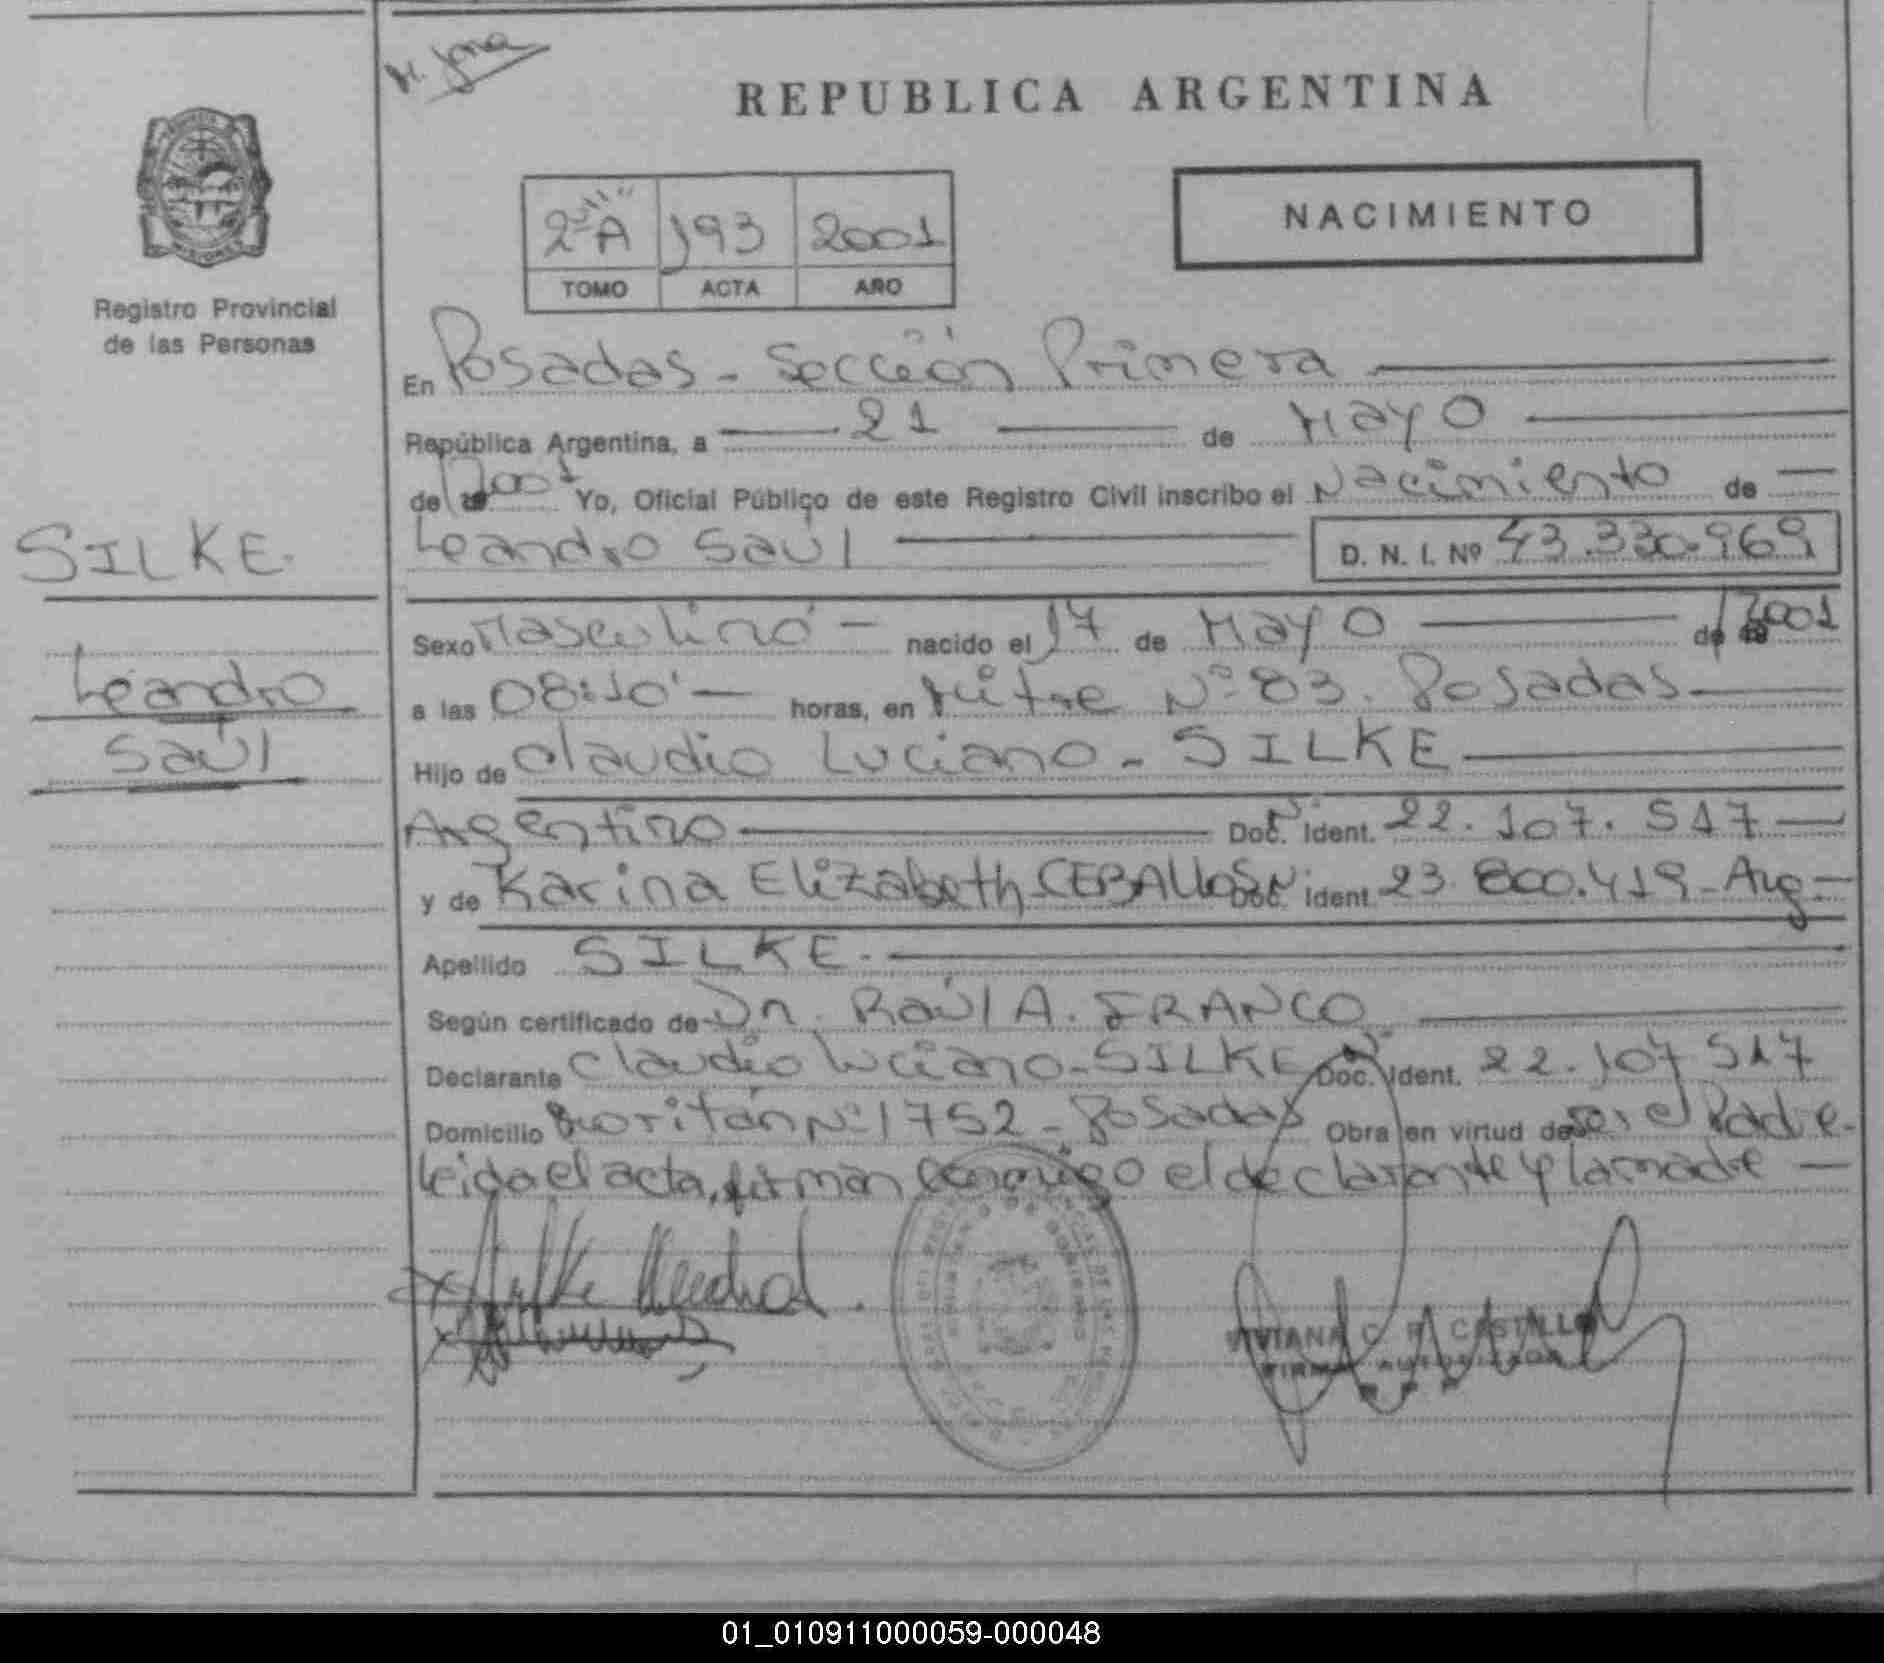 REPUBLICA ARGENTINA
NACIMIENTO
2º "A" 193 2001
TOMO ACTA AÑO
Registro Provincial
de las Personas
SILKE.
Leandro
Saúl
En Posadas - Sección Primera
República Argentina, a 21 de Mayo
de 2001 Yo, Oficial Público de este Registro Civil inscribo el Nacimiento de
Leandro Saúl D. N. I. Nº 43.330.969
Sexo Masculino - nacido el 17 de Mayo de 2001
a las 08:10' - horas, en Mitre Nº 83. Posadas
Hijo de Claudio Luciano - SILKE
Argentino Doc. Nº Ident. 22.107.517
y de Karina Elizabeth CEBALLOS Doc. Nº Ident. 23.800.419 - Arg -
Apellido SILKE.
Según certificado de Dr. Raúl A. FRANCO
Declarante Claudio Luciano - SILKE Doc. Nº Ident. 22.107.517
Domicilio Nº 1752 - Posadas Obra en virtud de ser el Padre.
Leida el acta, firman conmigo el declarante y la madre
VIVIANA C. R. CASTILLO
01_010911000059-000048